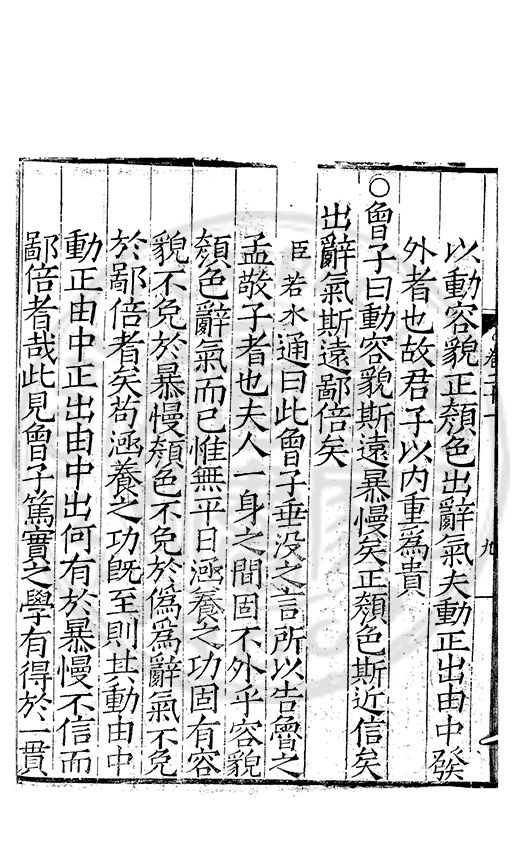 以動容貌正顏色出辭氣夫動正出由中發
外者也故君子以内重為貴
○曾子曰動容貌斯遠暴慢矣正顏色斯近信矣
出辭氣斯遠鄙倍矣
臣若水通曰此曾子垂没之言所以告魯之
孟敬子者也夫人一身之間固不外乎容貌
顏色辭氣而已惟無平日涵養之功固有容
貌不免於暴慢顏色不免於偽為辭氣不免
於鄙倍者矣苟涵養之功既至則其動由中
動正由中正出由中出何有於暴慢不信而
鄙倍者哉此見曾子篤實之學有得於一貫
九